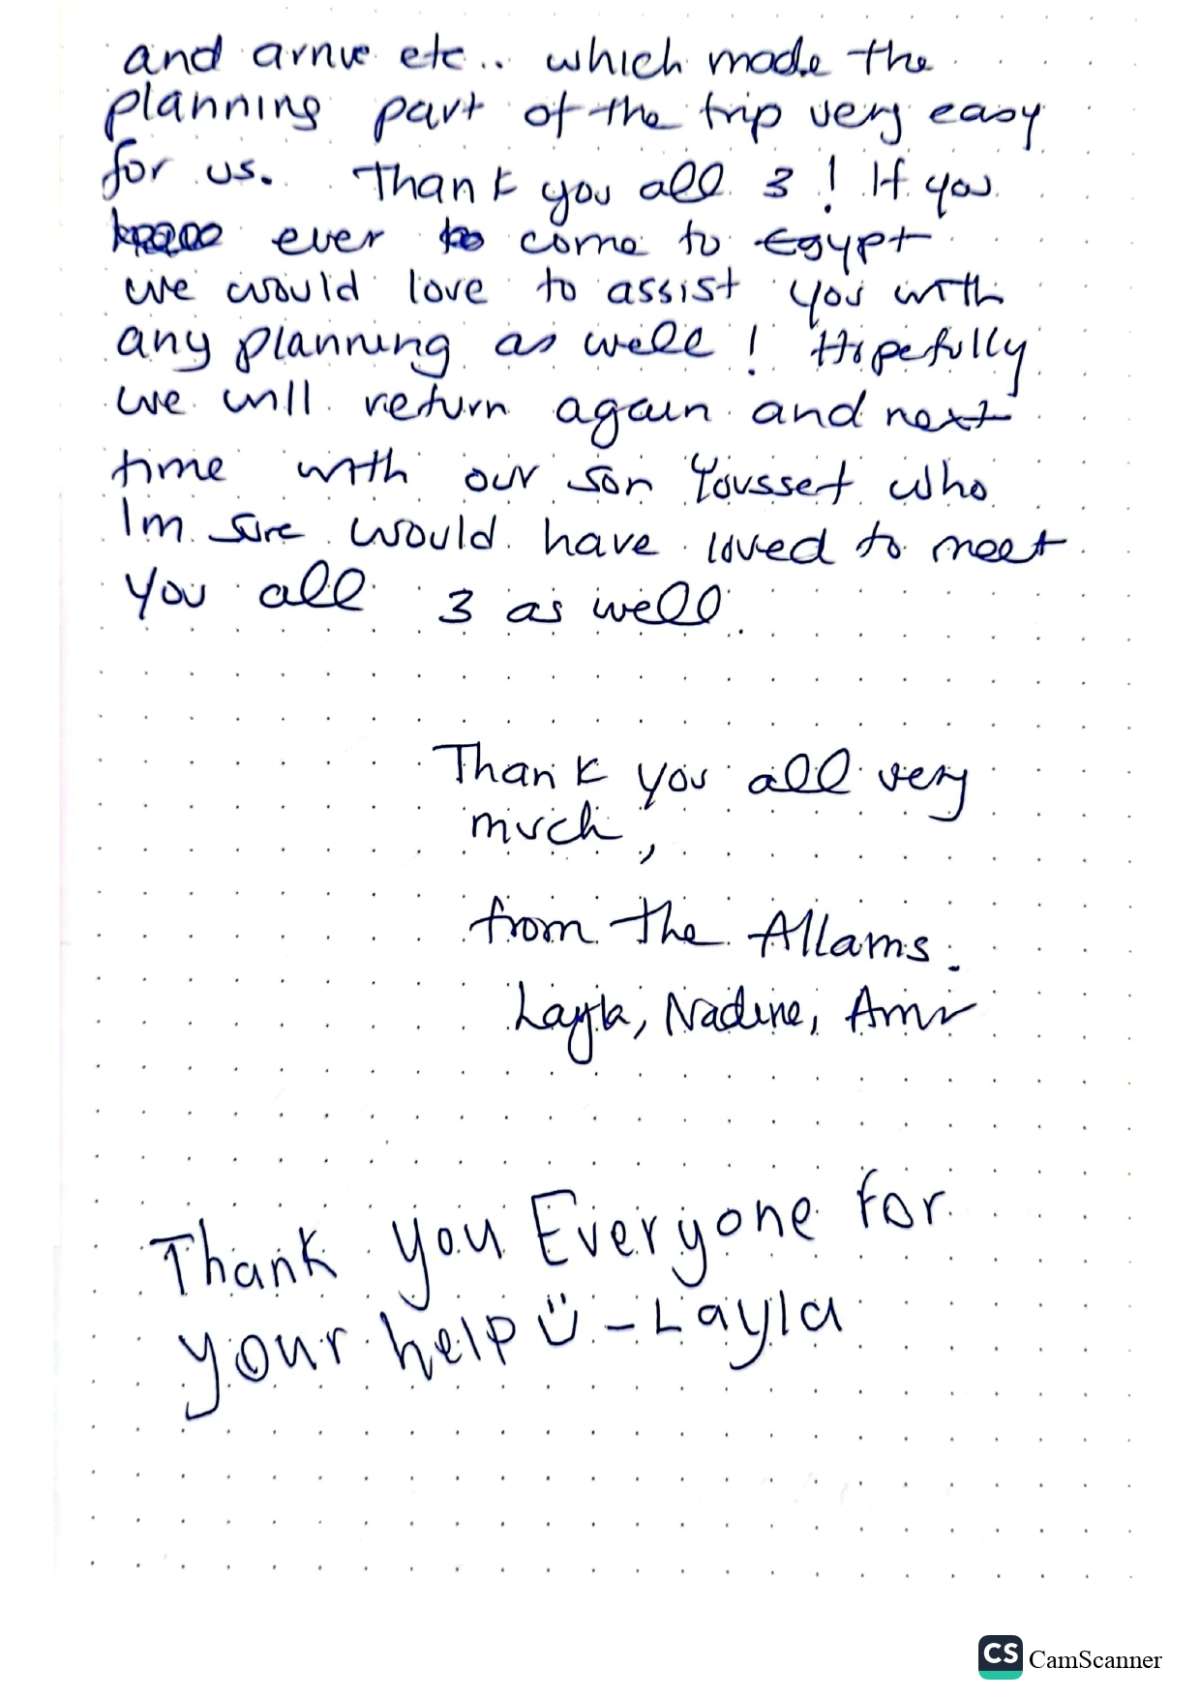 and arrive etc.. which made the
planning part of the trip very easy
for us. Thank you all 3! If you
ever come to Egypt
we would love to assist you with
any planning as well! Hopefully
we will return again and next
time with our son Youssef who
Im sure would have loved to meet
you all 3 as well.
Thank you all very
much,
from the Allams.
Layla, Nadine, Amr
Thank you Everyone for
your help - Layla
CS CamScanner